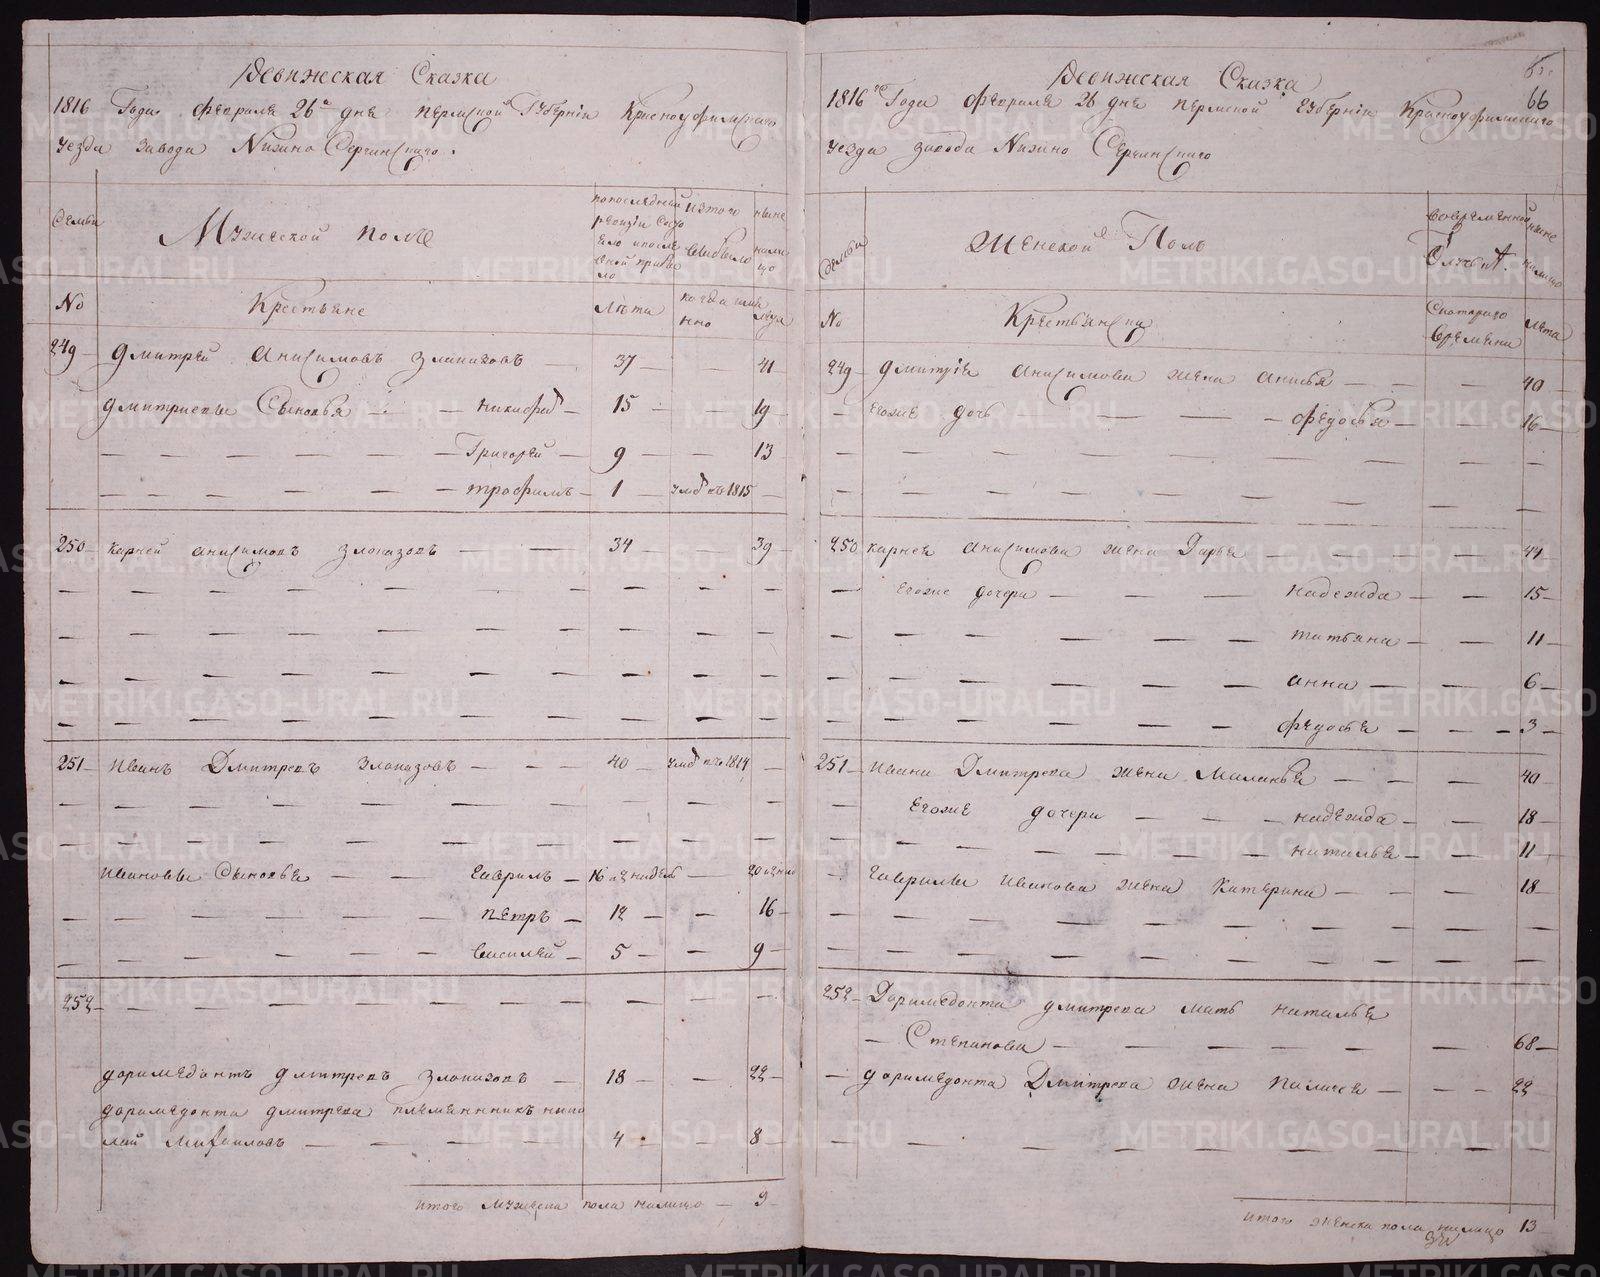 Ревижская Сказка
1816 Года Февраля 26 дня Пермской Губернии Красноуфимского
уезда завода Нижно Сергинского.
Семьи
Мужеской полъ
по последней ревизии состояло и после оной прибыло
из того выбыло
ныне налицо
No
Крестьяне
Лета
когда имянно
Лета
249 Дмитрей Анисимовъ Злоказовъ 37 41
Дмитриевы Сыновья Никифоръ 15 19
Григорей 9 13
Трофимъ 1 умръ въ 1815
250 Карней Анисимовъ Злоказовъ 34 39
251 Иванъ Дмитревъ Злоказовъ 40 умръ въ 1814
Ивановы Сыновья Гаврилъ 16 20
Петръ 12 16
Василей 5 9
252
Даримедонтъ Дмитревъ Злоказовъ 18 22
Даримедонта Дмитрева племенникъ Нико
лай Михаиловъ 4 8
итого мужеска пола налицо 9
66
Ревижская Сказка
1816 го Года Февраля 26 дня Пермской Губернии Красноуфимскаго
уезда завода Нижно Сергинского
Семьи
Женской Полъ
во временной отлучке
ныне налицо
No
Крестьянски
С котораго времени
Лета
249 Дмитрiя Анисимова жена Анисья 40
Егоже дочь Федосья 16
250 Карнея Анисимова жена Дарья 41
Егоже дочери Надежда 15
Татьяна 11
Анна 6
Федосья 3
251 Ивана Дмитрева жена Маланья 40
Егоже дочери Надежда 18
Наталья 11
Гаврилы Иванова жена Катерина 18
252 Даримедонта Дмитрева мать Наталья
Степанова 68
Даримедонта Дмитрева жена Палагея 22
итого женска пола налицо 13
METRIKI.GASO-URAL.RU